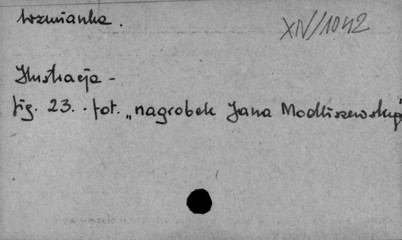 wzmianka.
XIV/1042
Ilustracja -
fig. 23. - fot. „nagrobek Jana Modliszewskiego"